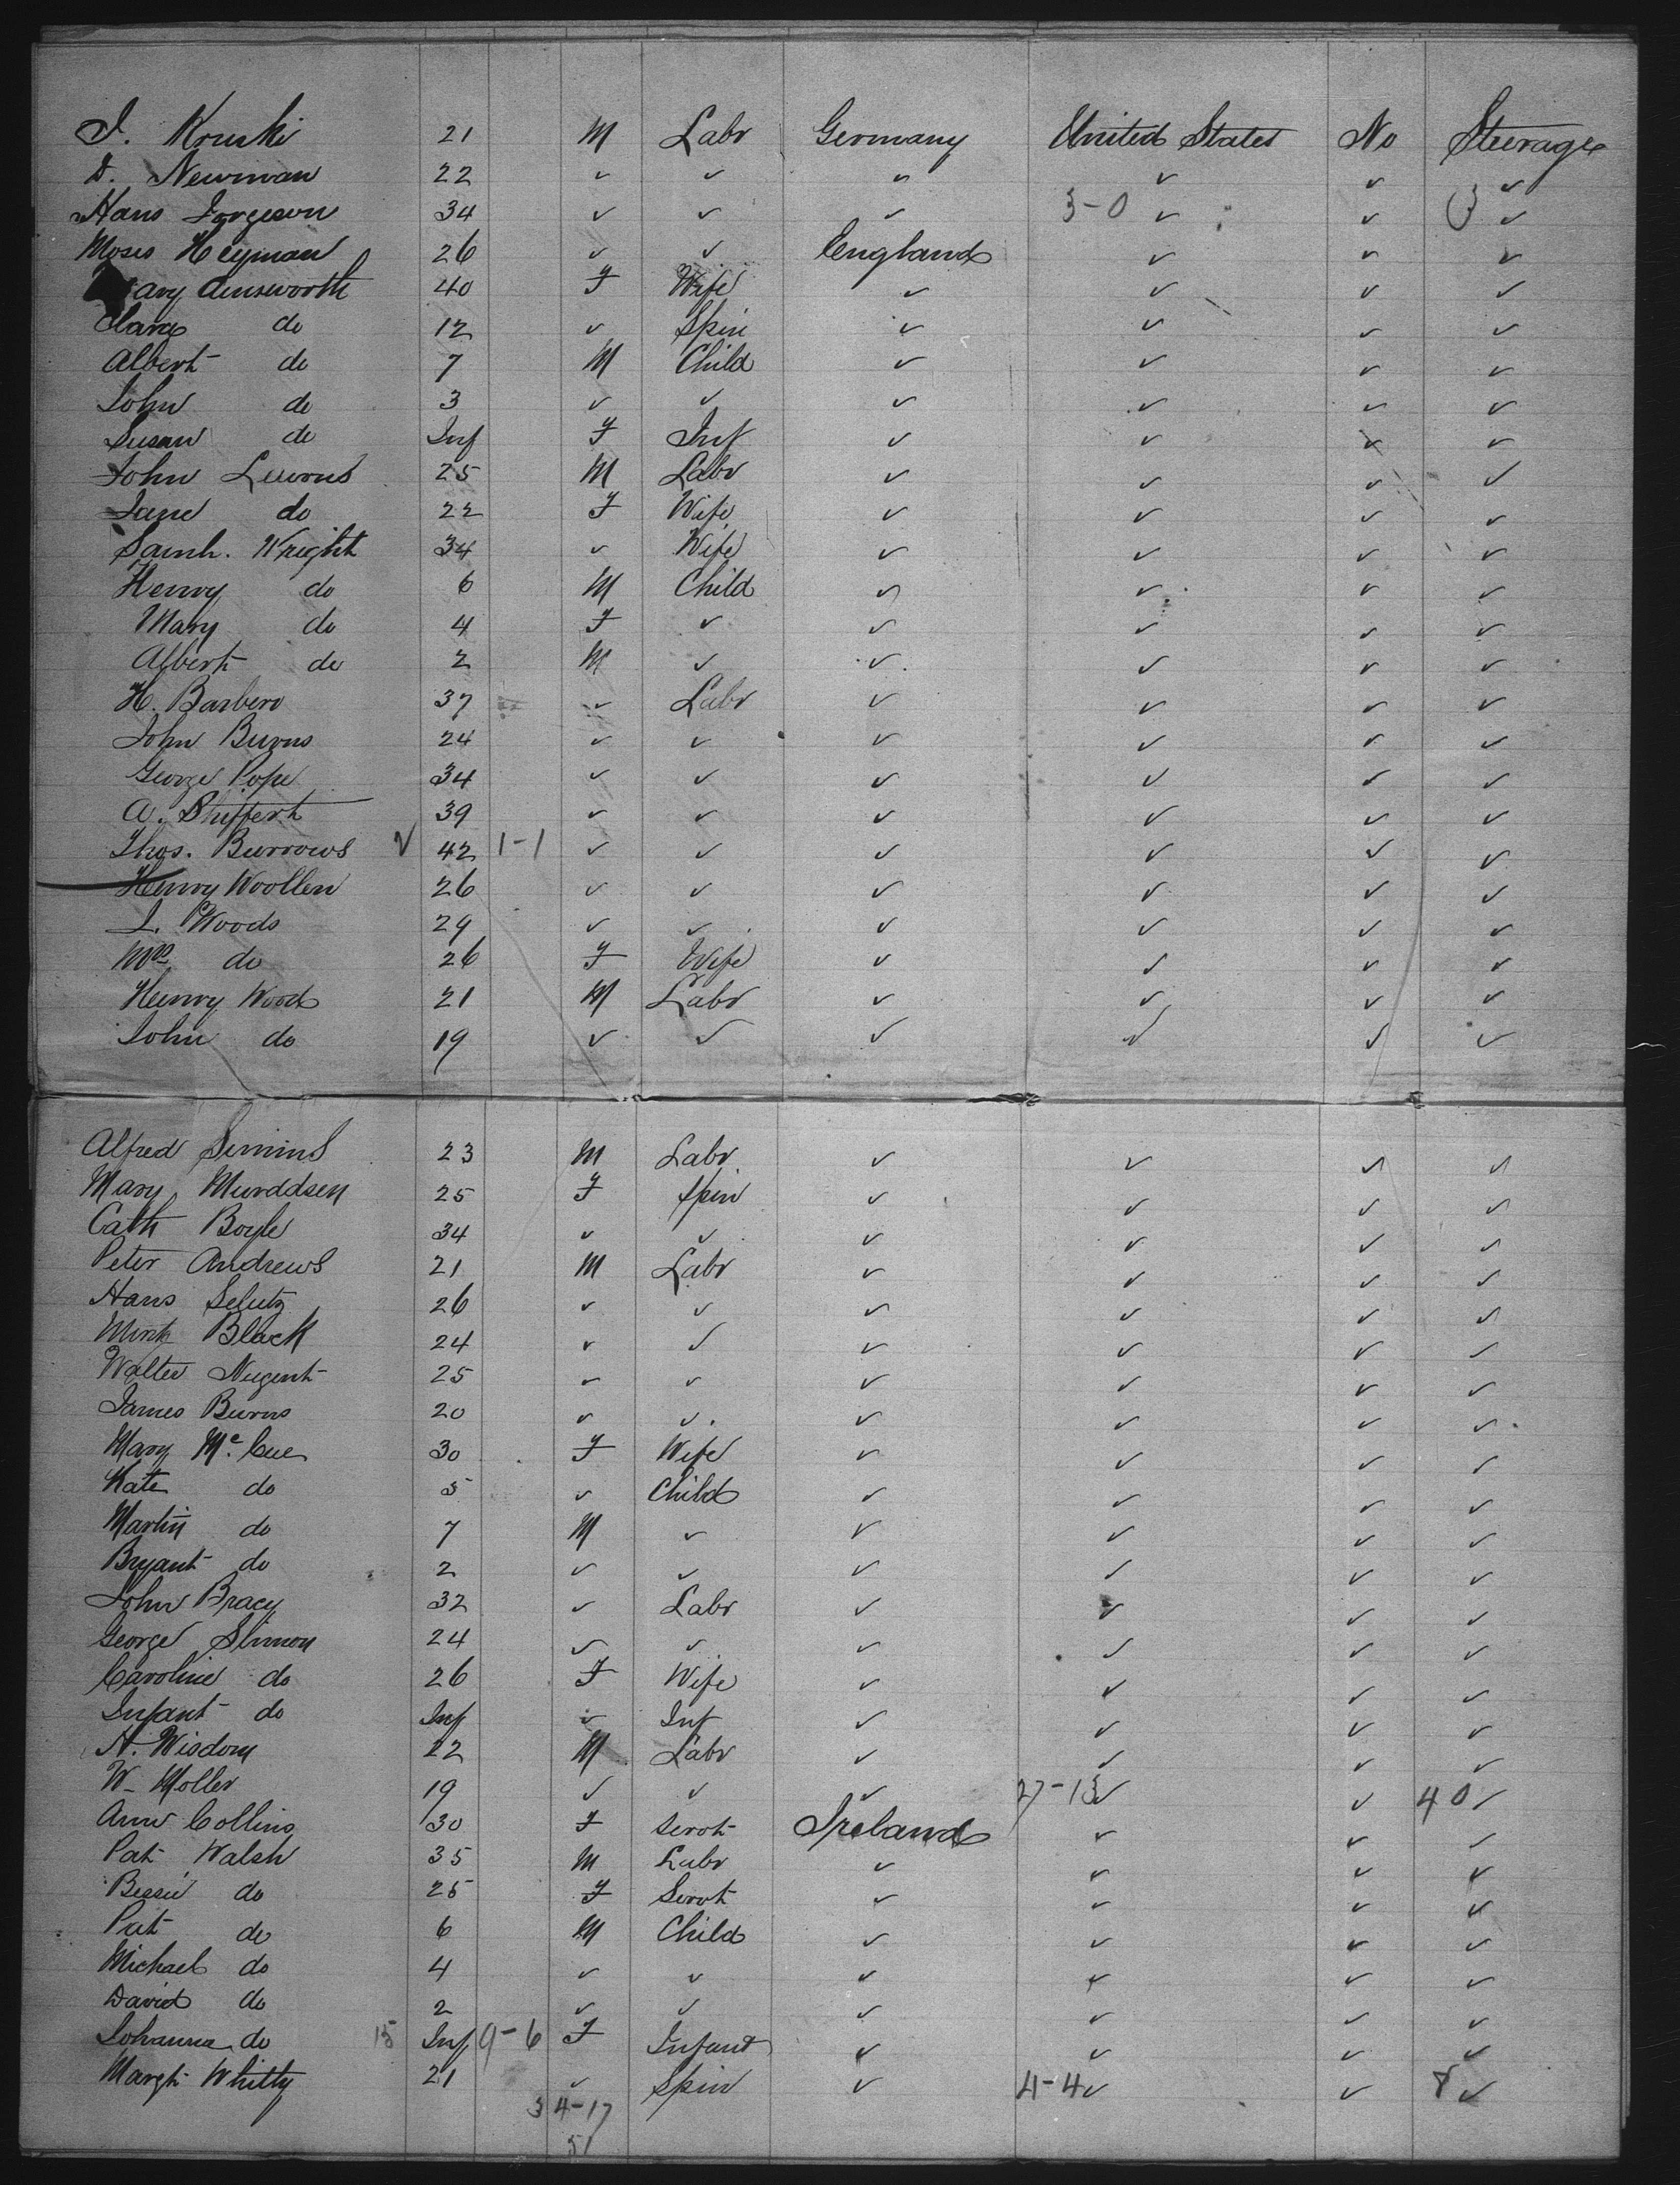 J. Kruski 21 M Labr Germany United States No Steerage
D. Newman 22 ✓ ✓ ✓ ✓ ✓ ✓
Hans Jorgeson 34 ✓ ✓ ✓ 3-0 ✓ ✓ 3 ✓
Moses Heyman 26 ✓ ✓ England ✓ ✓ ✓
Mary Ainsworth 40 F Wife ✓ ✓ ✓ ✓
Clara do 12 ✓ Spin ✓ ✓ ✓ ✓
Albert do 7 M Child ✓ ✓ ✓ ✓
John do 3 ✓ ✓ ✓ ✓ ✓ ✓
Susan do Inf F Inf ✓ ✓ ✓ ✓
John 25 M Labr ✓ ✓ ✓ ✓
Jane do 22 F Wife ✓ ✓ ✓ ✓
Sarah. Wright 34 ✓ Wife ✓ ✓ ✓ ✓
Henry do 6 M Child ✓ ✓ ✓ ✓
Mary do 4 F ✓ ✓ ✓ ✓ ✓
Albert do 2 M ✓ ✓ ✓ ✓ ✓
H. Barbero 37 ✓ Labr ✓ ✓ ✓ ✓
John Burns 24 ✓ ✓ ✓ ✓ ✓ ✓
George Pope 34 ✓ ✓ ✓ ✓ ✓ ✓
A. Shiffert 39 ✓ ✓ ✓ ✓ ✓ ✓
Thos. Burrows ✓ 42 1-1 ✓ ✓ ✓ ✓ ✓ ✓
Henry Woollen 26 ✓ ✓ ✓ ✓ ✓ ✓
J. Woods 29 ✓ ✓ ✓ ✓ ✓ ✓
Mrs do 26 F Wife ✓ ✓ ✓ ✓
Henry Wood 21 M Labr ✓ ✓ ✓ ✓
John do 19 ✓ ✓ ✓ ✓ ✓ ✓
Alfred Simins 23 M Labr ✓ ✓ ✓ ✓
Mary Murddsen 25 F Spin ✓ ✓ ✓ ✓
Cath Boyle 34 ✓ ✓ ✓ ✓ ✓ ✓
Peter Andrews 21 M Labr ✓ ✓ ✓ ✓
Hans Selutz 26 ✓ ✓ ✓ ✓ ✓ ✓
Black 24 ✓ ✓ ✓ ✓ ✓ ✓
Walter Nugent 25 ✓ ✓ ✓ ✓ ✓ ✓
James Burns 20 ✓ ✓ ✓ ✓ ✓ ✓
Mary McCue 30 F Wife ✓ ✓ ✓ ✓
Kate do 5 ✓ Child ✓ ✓ ✓ ✓
Martin do 7 M ✓ ✓ ✓ ✓ ✓
Bryant do 2 ✓ ✓ ✓ ✓ ✓ ✓
John Bracy 32 ✓ Labr ✓ ✓ ✓ ✓
George Slimon 24 ✓ ✓ ✓ ✓ ✓ ✓
Caroline do 26 F Wife ✓ ✓ ✓ ✓
Infant do Inf ✓ Inf ✓ ✓ ✓ ✓
H. Wisdom 22 M Labr ✓ ✓ ✓ ✓
W. Moller 19 ✓ ✓ ✓ 27-13 ✓ ✓ 40 ✓
Ann Collins 30 F Servt Ireland ✓ ✓ ✓
Pat Walsh 35 M Labr ✓ ✓ ✓ ✓
Bessie do 25 F Servt ✓ ✓ ✓ ✓
Pat do 6 M Child ✓ ✓ ✓ ✓
Michael do 4 ✓ ✓ ✓ ✓ ✓ ✓
David do 2 ✓ ✓ ✓ ✓ ✓ ✓
Johanna do 15 Inf 9-6 F Infant ✓ ✓ ✓ ✓
Margt Whitty 21 ✓ Spin ✓ 4-4 ✓ ✓ 8 ✓
34-17
51